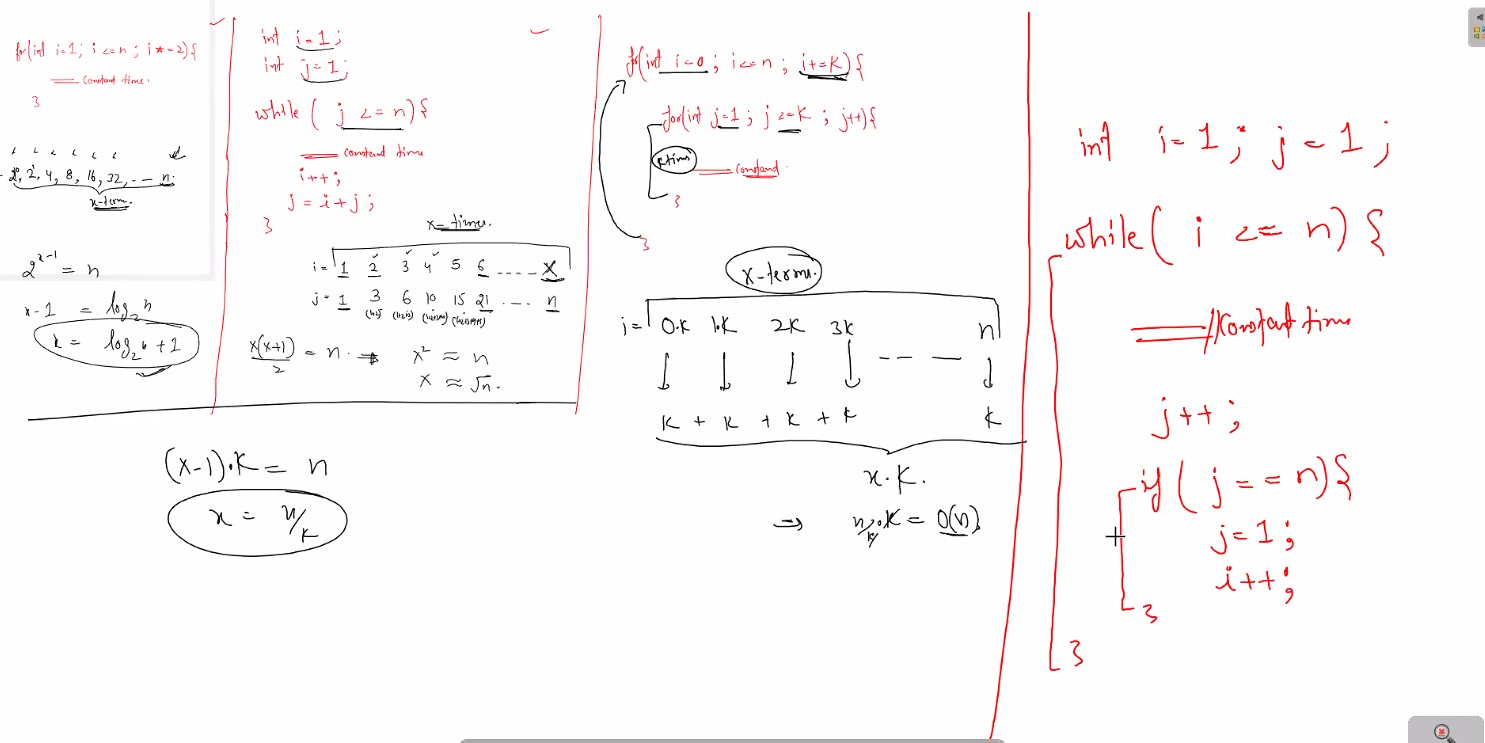 for(int i=1; i<=n; i*=2){
constant time.
}
2⁰, 2¹, 4, 8, 16, 32, .. -- n.
x-term.
2^(x-1) = n
x-1 = log₂n
x = log₂n +1
int i=1;
int j=1;
while ( j <= n){
constant time
i++;
j = i+j;
}
x-times.
i= 1 2 3 4 5 6 ..... X
j= 1 3 6 10 15 21 ... n
(1+2) (1+2+3) (1+2+3+4) (1+2+3+4+5)
x(x+1)/2 = n. ⇒ x² ≈ n
x ≈ √n.
for(int i=0; i<=n; i+=K){
for(int j=1; j<=K; j++){
ktimes
constant.
}
}
x-terms.
i= 0.K 1.K 2K 3K -- -- n
↓ ↓ ↓ ↓ ↓
K + K + K + K K
x.K.
⇒ n/K.K = O(n).
(x-1).K = n
x = n/K
int i=1; j=1;
while( i <= n) {
//Constant time
j++;
if( j == n){
j=1;
i++;
}
}